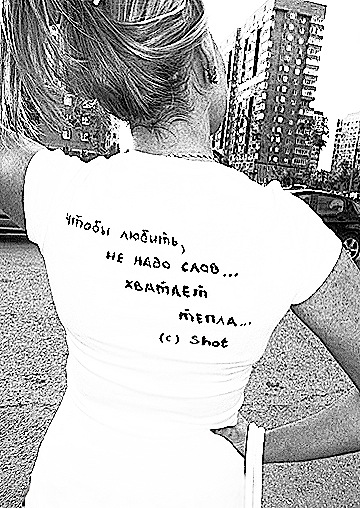 чтобы любить,
не надо слов...
хватает
тепла...
(c) Shot